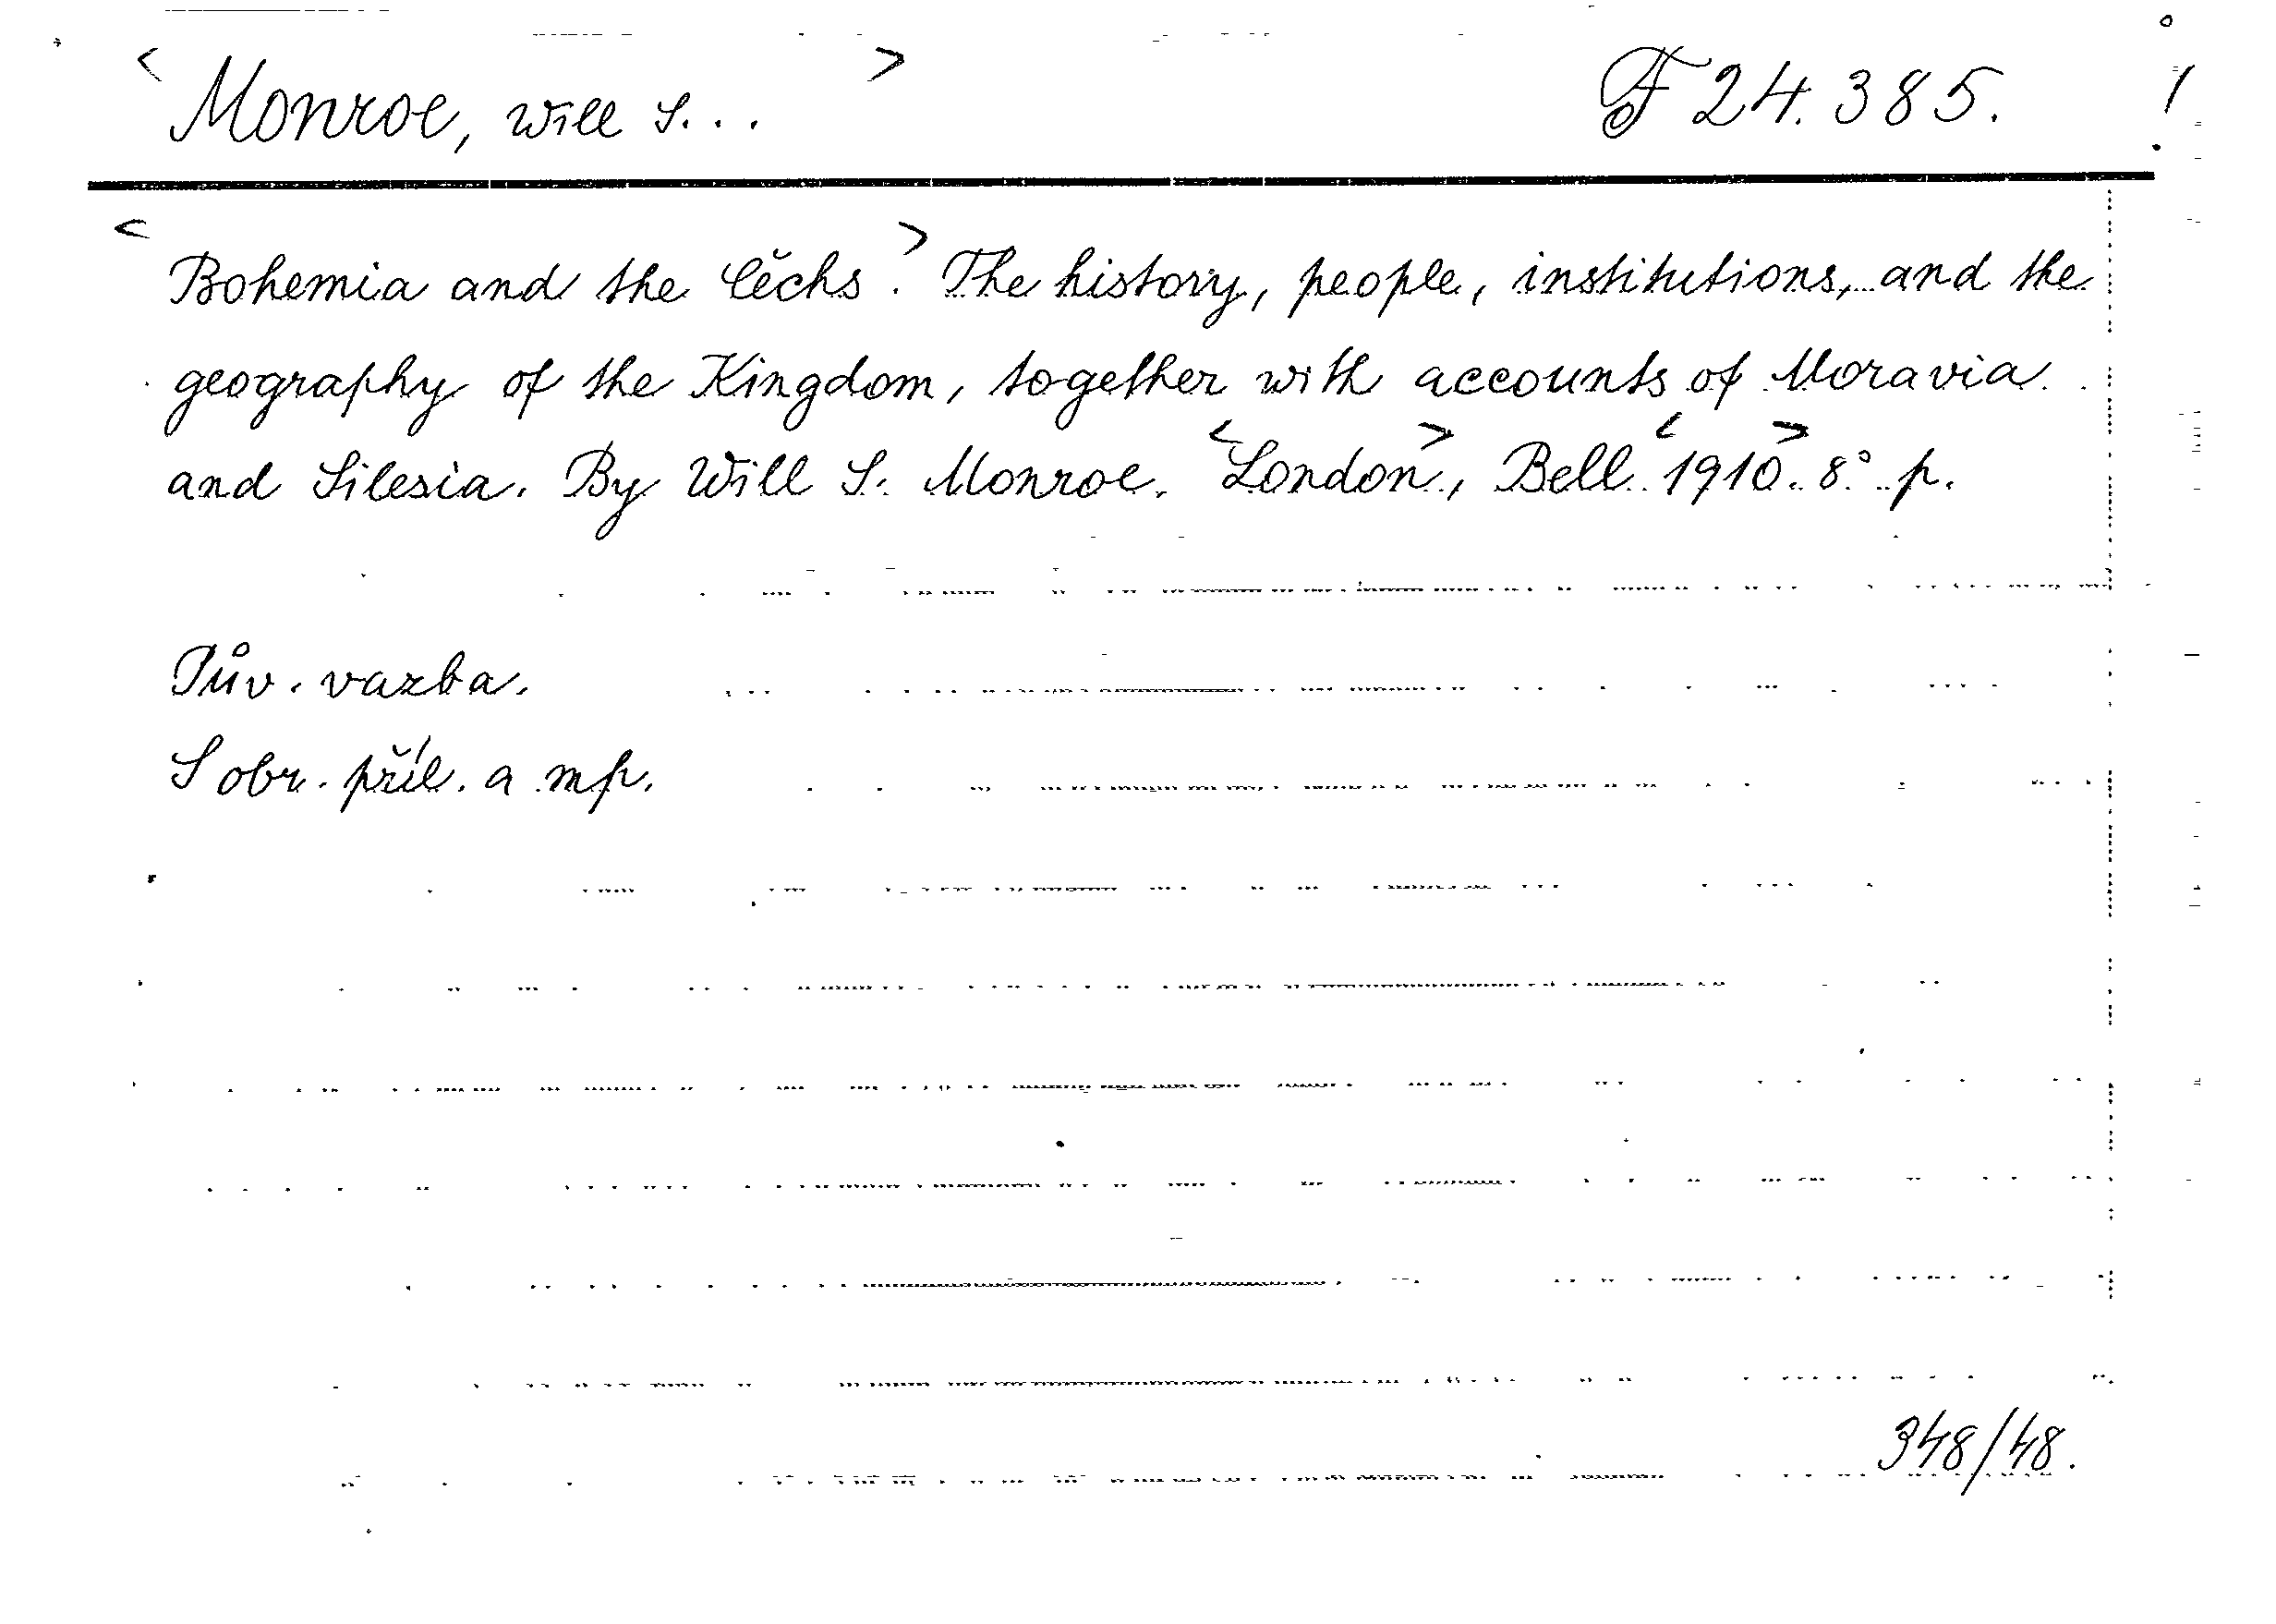 <Monroe, Will S...> F 24.385. /
<Bohemia and the Cěchs.> The history, people, institutions, and the
geography of the Kingdom, together with accounts of Moravia
and Silesia. By Will S. Monroe. <London>, Bell <1910>. 8° p.
Pův. vazba.
S obr. příl. a mp.
348/48.